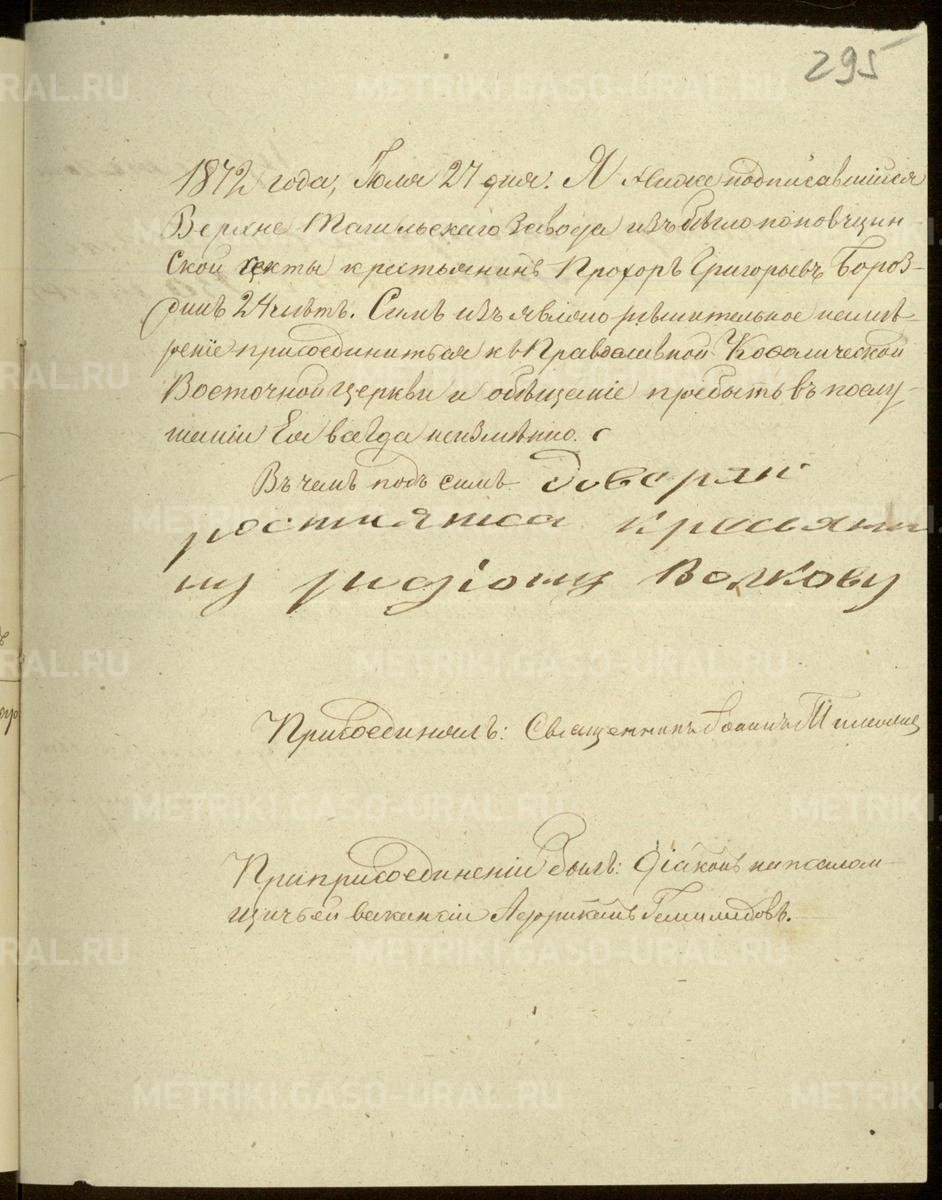 295
1872 года, Iюля 27 дня. Я нижеподписавшiйся
Верхне Тагильскаго завода изъ бѣглопоповщин-
ской секты крестьянинъ Прохоръ Григорьевъ Бороз-
динъ 24 лѣтъ. Симъ изъявляю рѣшительное намѣ-
ренiе присоединиться къ Православной Кафолической
Восточной Церкви и обѣщанiе пребыть въ послу-
шанiи Ея всегда неизмѣнно.
Въ чемъ подъ симъ доверяю
росписатса кресьяни
ну родiону Волкову
Присоединилъ: Священникъ Iоаннъ
При присоединенiи былъ: Дiаконъ на псалом-
щичьей вакансiи Африканъ
METRIKI.GASO-URAL.RU